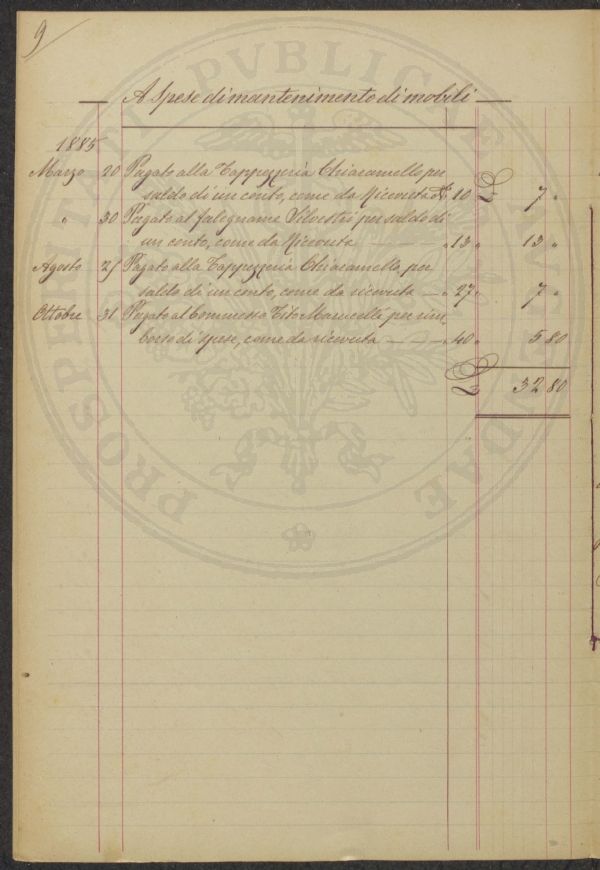 9
A Spese di mantenimento di mobili
1885
Marzo 20 Pagato alla Tappezzeria Chiaramello per
saldo di un conto, come da Ricevuta N. 10 £ 7 "
" 30 Pagato al falegname Silvestri per saldo di
un conto, come da Ricevuta — " 13 " 13 "
Agosto 25 Pagato alla Tappezzeria Chiaramello, per
saldo di un conto, come da ricevuta — " 27 " 7 "
Ottobre 31 Pagato al Commesso Tito Marucelli per rim
borso di spese, come da ricevuta — " 40 " 5 80
£ 32 80
PROSPERITATI PVBLICAE AVGENDAE